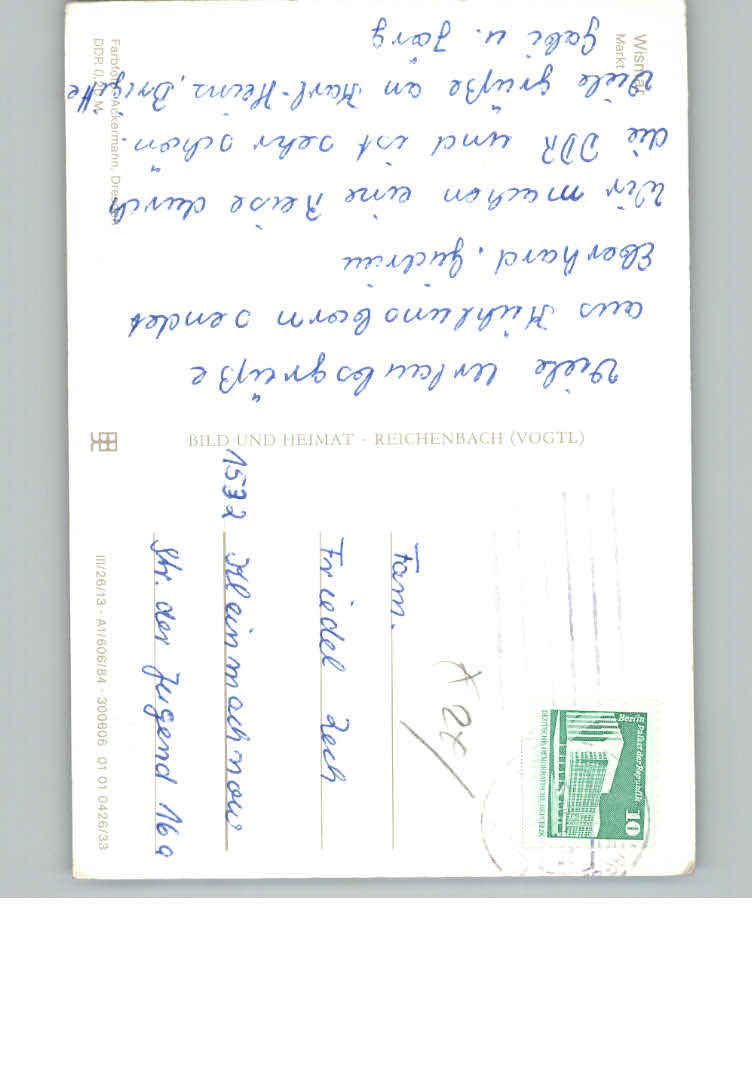 Wismar
Markt
Viele Urlaubsgrüße
aus Kühlungsborn sendet
Eberhard, Gudrun
Wir machen eine Reise durch
die DDR und ist sehr schön.
Viele Grüße an Karl-Heinz, Brigitte
Gabi u. Jörg
Farbfoto: Ackermann, Dresden
BILD UND HEIMAT · REICHENBACH (VOGTL)
III/26/13 · A1/606/84 · 300606 01 01 0426/33
Berlin Palast der Republik
10
DEUTSCHE DEMOKRATISCHE REPUBLIK
Fam.
Friedel Zech
1532 Kleinmachnow
Str. der Jugend 16a